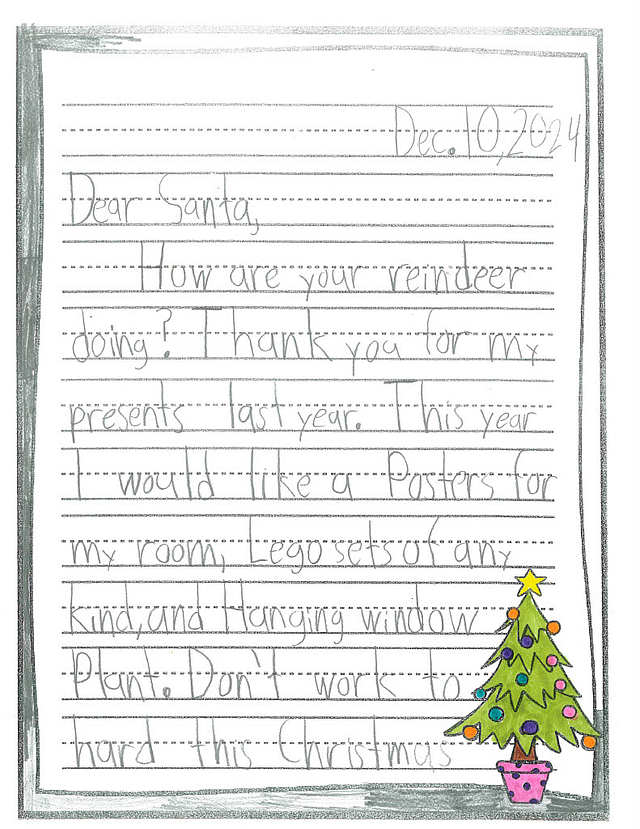 Dec. 10, 2024
Dear Santa,
How are your reindeer
doing? Thank you for my
presents last year. This year
I would like a Posters for
my room, Lego sets of any
kind, and Hanging window
Plant. Don't work to
hard this Christmas